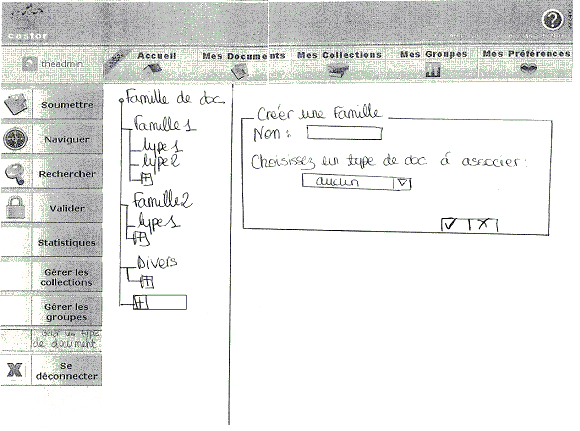 ?
castor
theadmin
Accueil
Mes Documents
Mes Collections
Mes Groupes
Mes Préférences
Soumettre
Naviguer
Rechercher
Valider
Statistiques
Gérer les
collections
Gérer les
groupes
de document
Se
déconnecter
Famille de doc
Famille 1
type 1
type 2
+
Famille 2
type 1
+
Divers
+
+
Créer une Famille
Nom :
Choisissez un type de doc à associer :
aucun